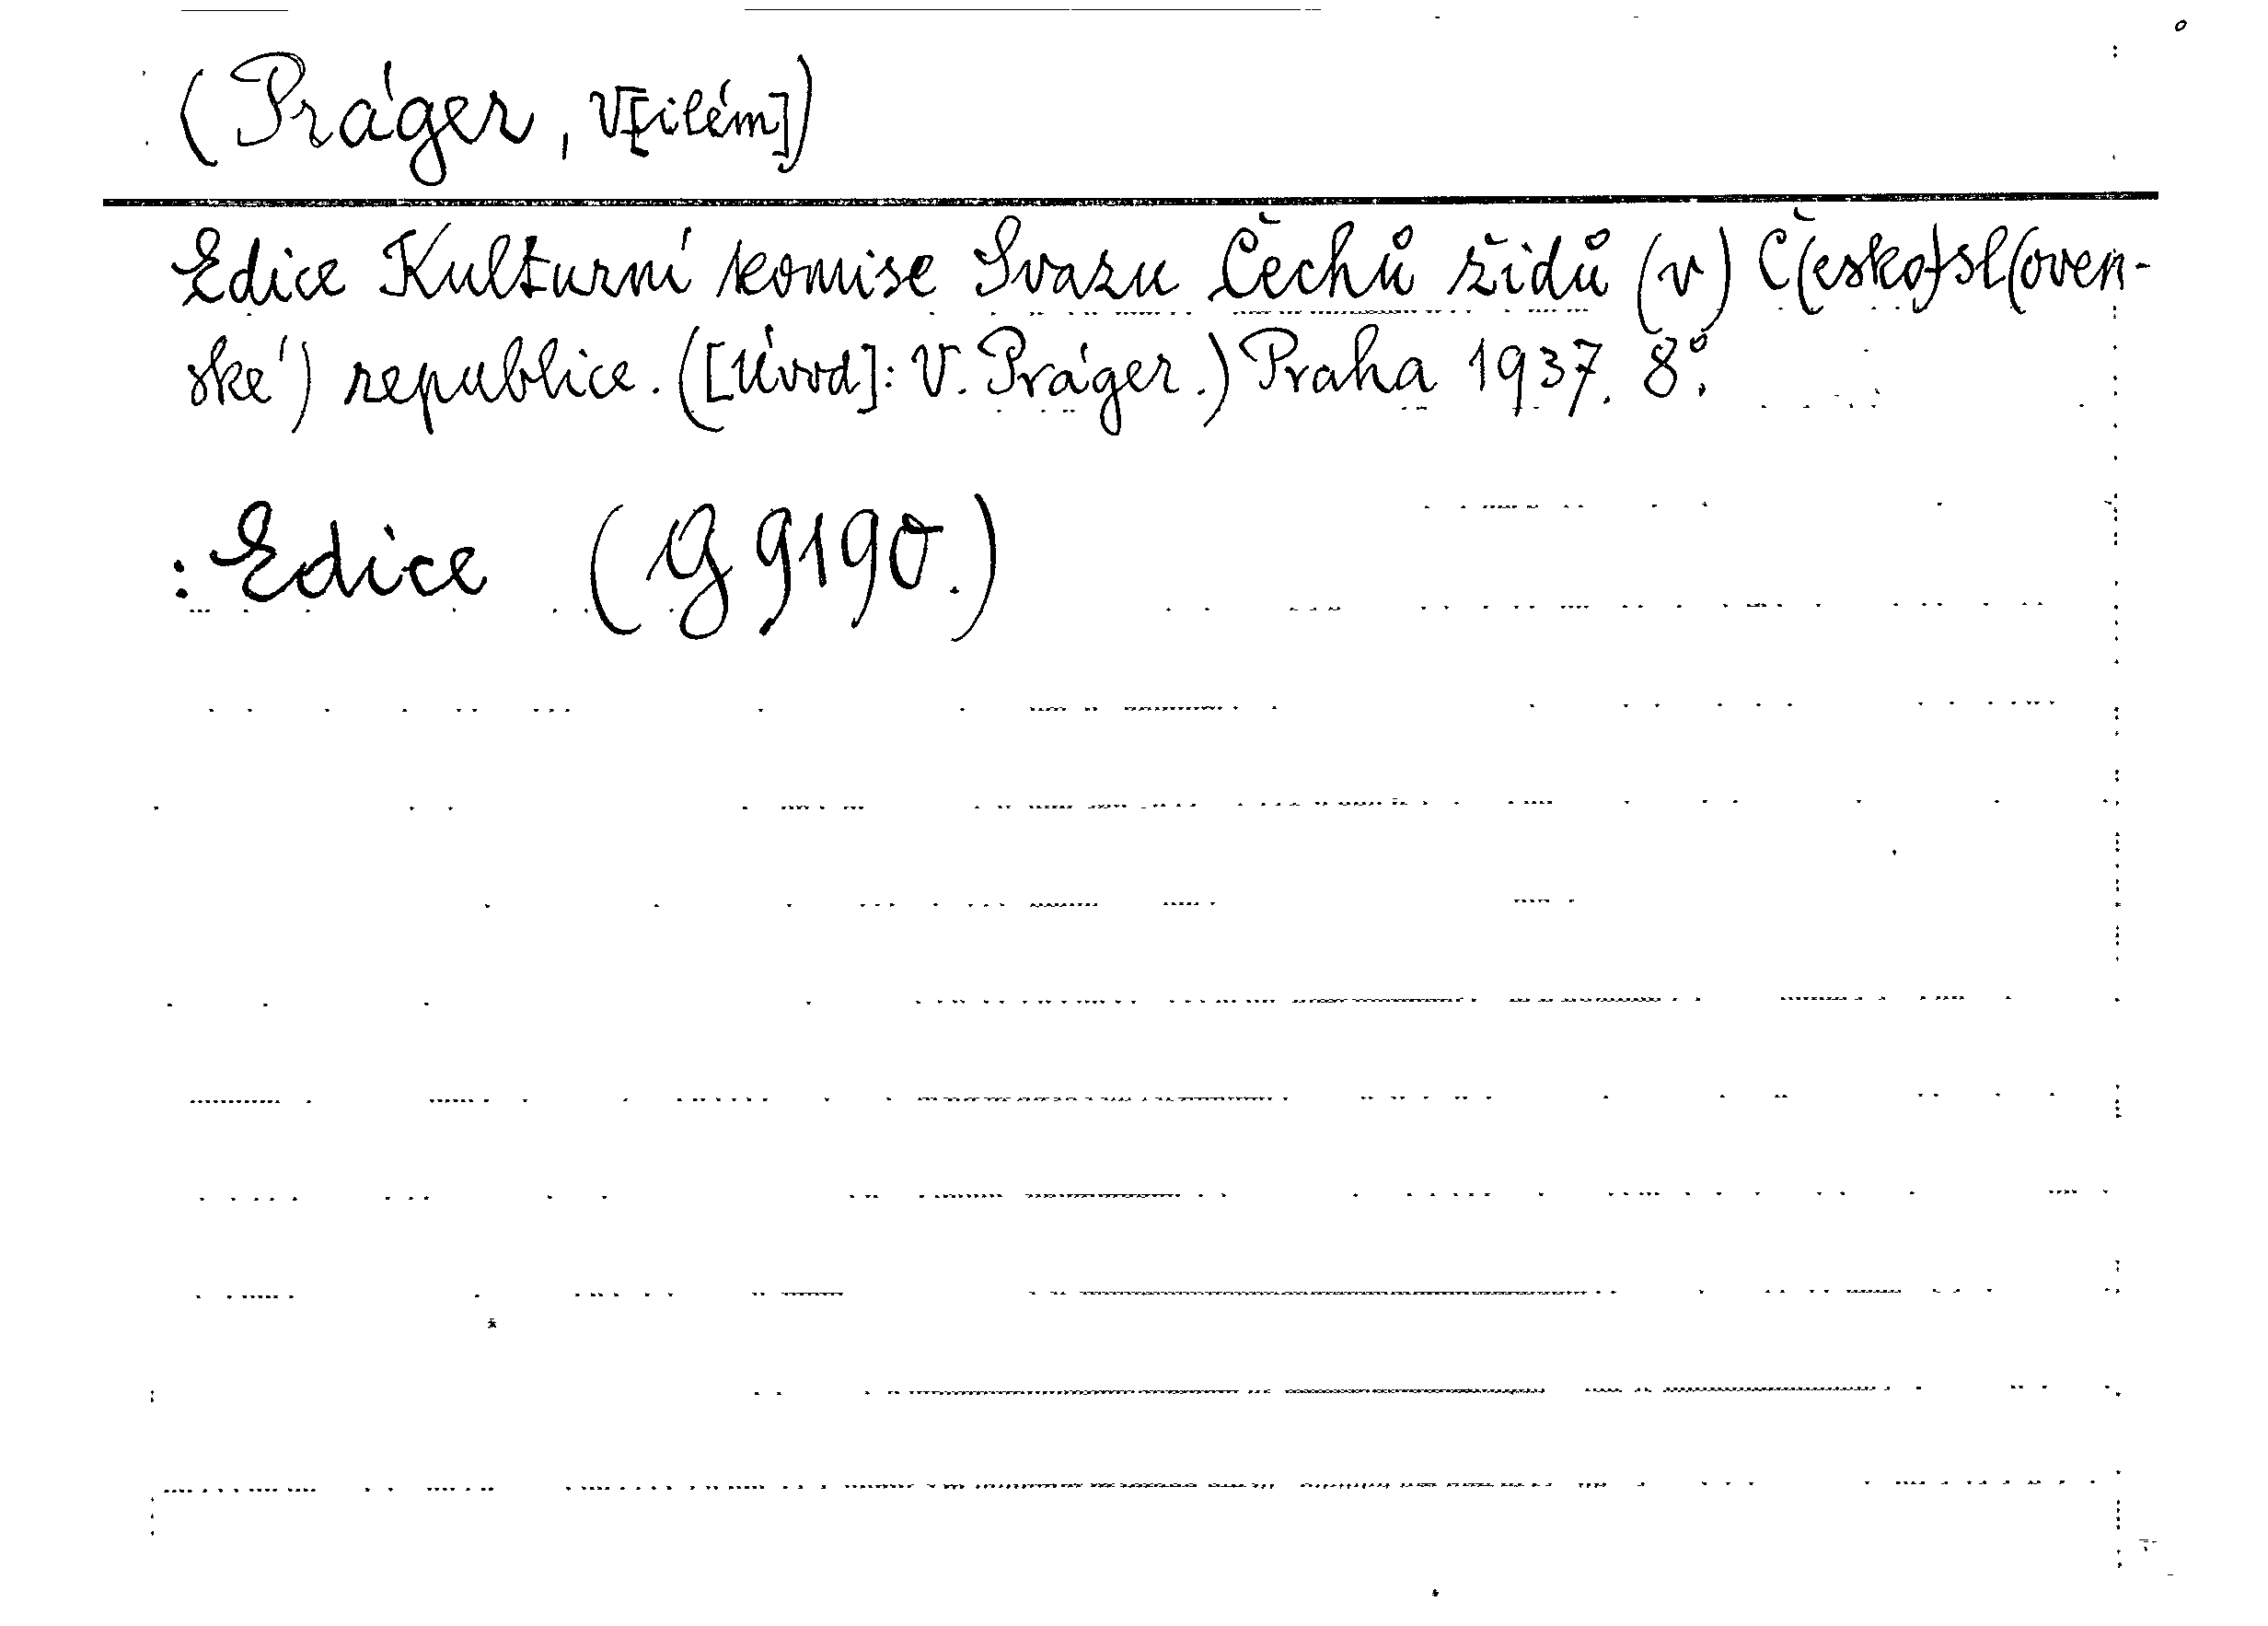 (Práger, V[ilém])
Edice Kulturní komise Svazu Čechů židů (v) Č(esko)sl(oven-
ské) republice. ([Úvod]: V. Práger.) Praha 1937. 8°.
: Edice (G 9190.)